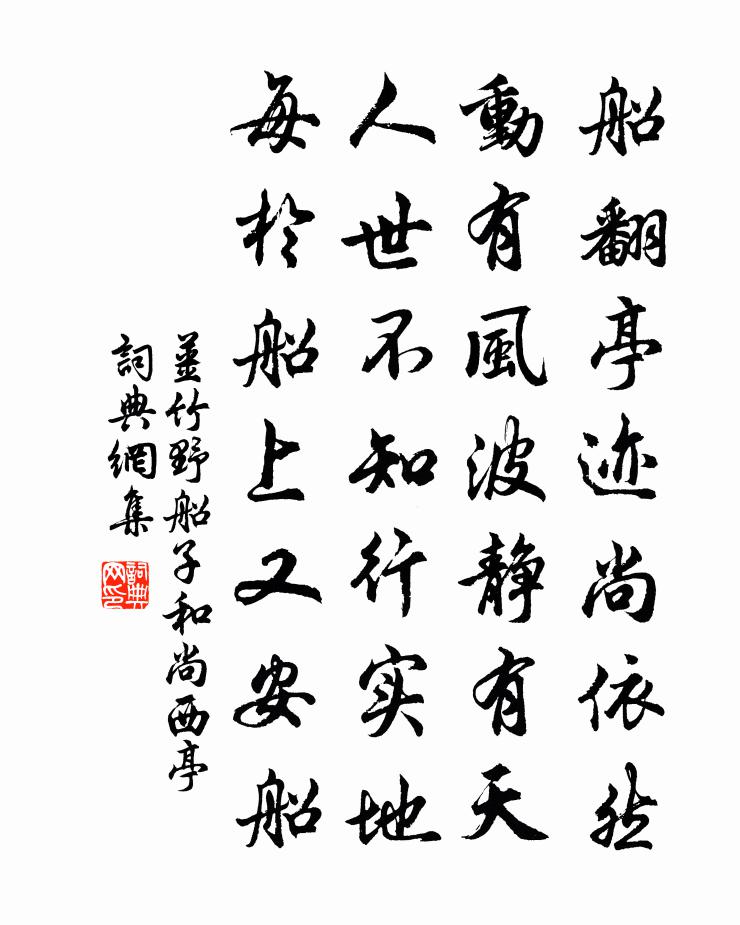 船翻亭迹尚依然
動有風波静有天
人世不知行实地
每於船上又安船
姜竹野船子和尚西亭
詞典網集
詞典网印